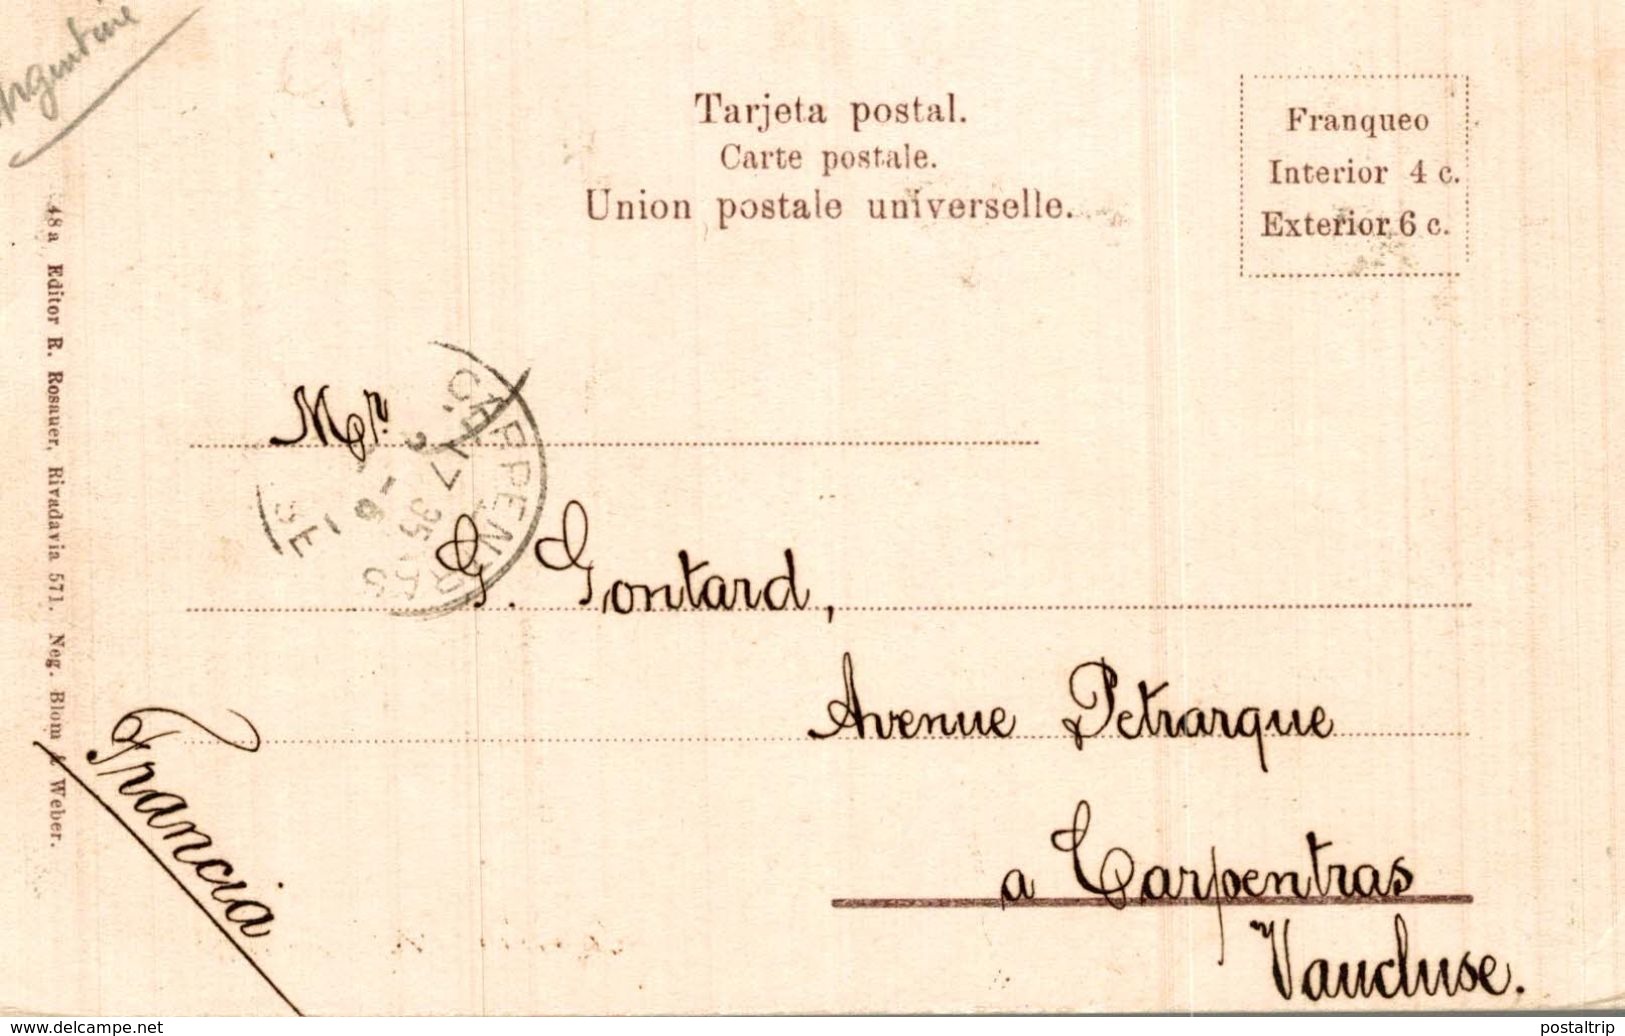 Argentine
Tarjeta postal.
Carte postale.
Union postale universelle.
Franqueo
Interior 4 c.
Exterior 6 c.
48a Editor R. Rosauer, Rivadavia 571. Neg. Blom & Weber.
CARPENTRAS
Mr.
G. Gontard,
Avenue Petrarque
a Carpentras
Vaucluse.
Francia
www.delcampe.net
postaltrip